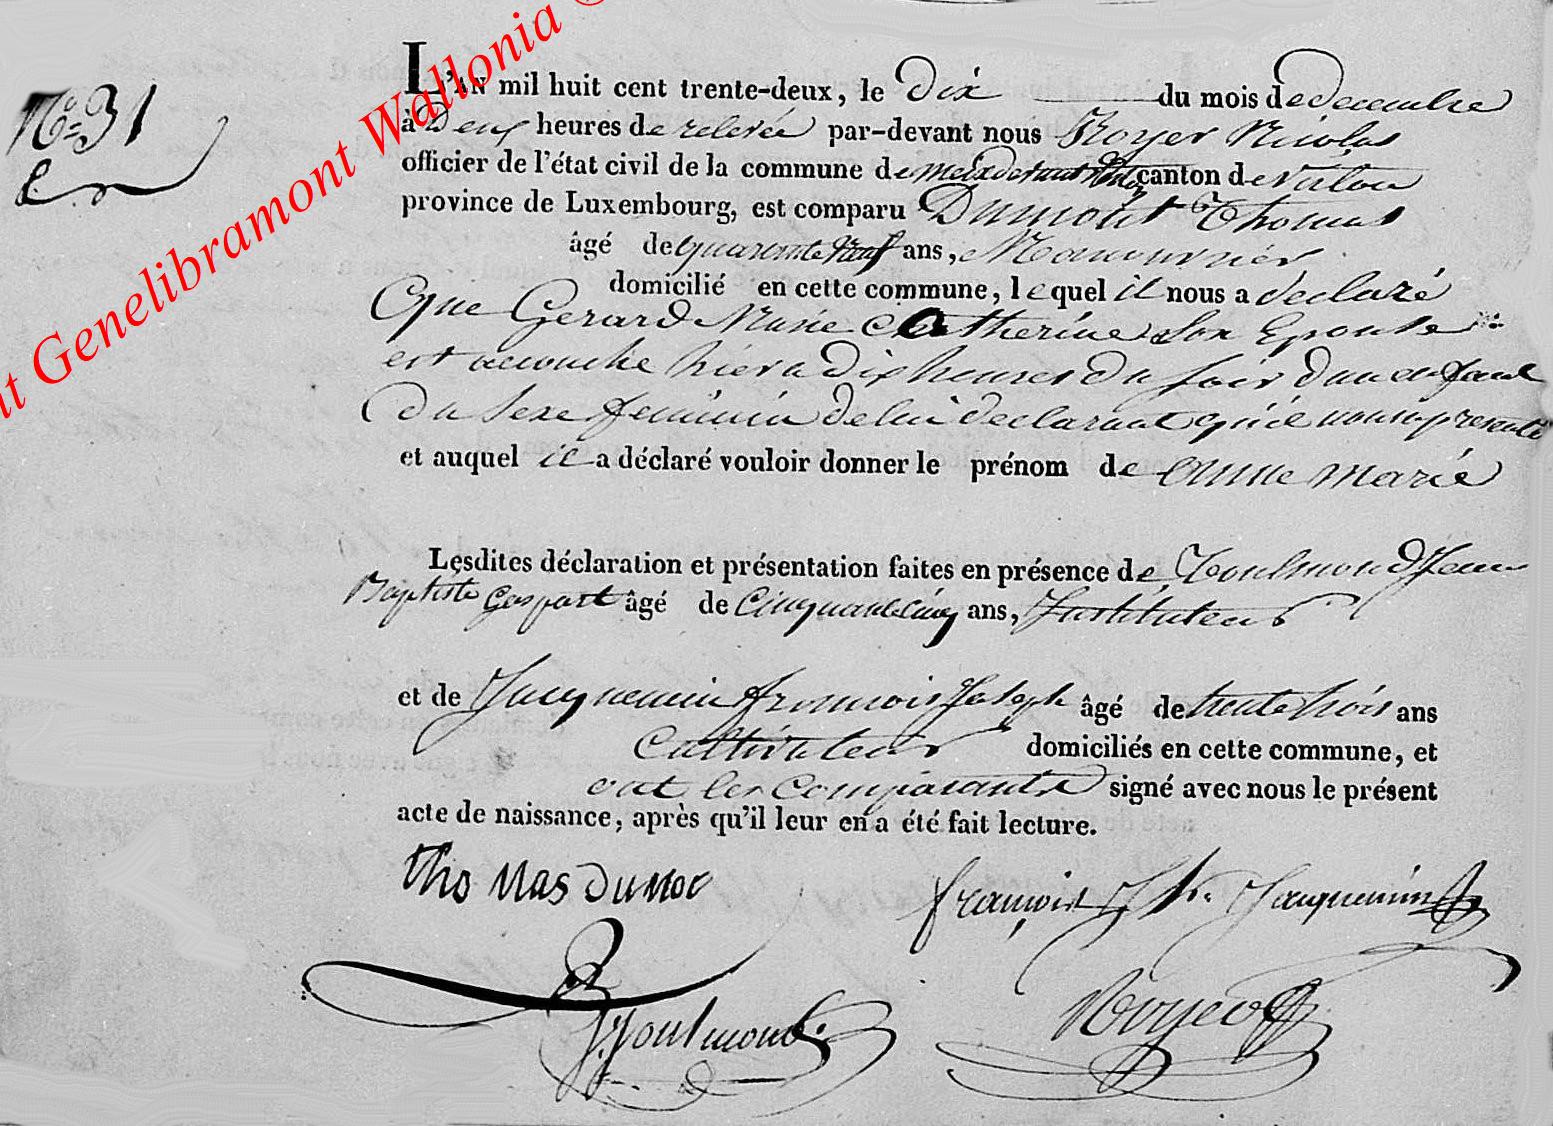 Genelibramont Wallonia ©
N° 31
L'AN mil huit cent trente-deux, le Dix du mois de decembre
à Deux heures de relevée par-devant nous Royer Nicolas
officier de l'état civil de la commune de Meixdevant Virton canton de Virton
province de Luxembourg, est comparu Dumont Thomas
âgé de quarante neuf ans, Manouvrier
domicilié en cette commune, lequel il nous a déclaré
Que Gerard Marie Catherine Son Epouse
est accouché hier a Dix heures Du Soir d'un enfant
Du Sexe feminin de lui declarant qu'il nous presente
et auquel il a déclaré vouloir donner le prénom de Anne Marie
Lesdites déclaration et présentation faites en présence de Toulmond Jean
Baptiste Gaspart âgé de Cinquante Cinq ans, Instituteur
et de Jacquemin François Joseph âgé de trente trois ans
Cultivateur domiciliés en cette commune, et
ont les comparants signé avec nous le présent
acte de naissance, après qu'il leur en a été fait lecture.
thomas Dumon
françois Jh. Jacquemin
J. Toulmond
Royer